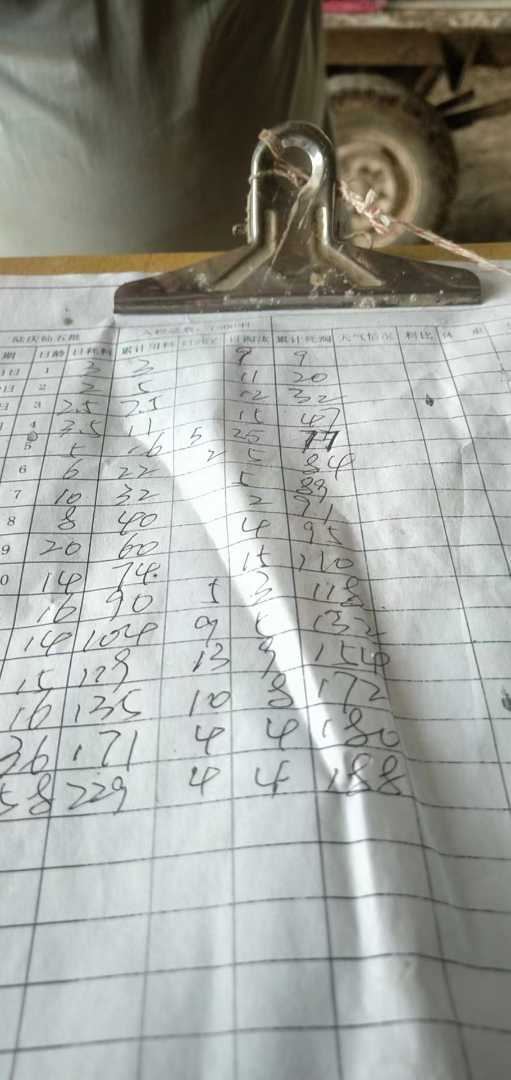 日期 日龄 日耗料 累计用料 日淘汰 累计死淘 天气情况 料比 体重
1 2 2 9 9
2 2 5 11 20
3 2.5 7.5 12 32
4 2.5 11 15 47
5 5 16 5 25 77
6 6 22 2 5 84
7 10 32 5 89
8 8 40 2 91
9 20 60 4 95
0 14 74 15 110
16 90 5 3 118
14 104 9 5 132
15 119 13 9 154
16 135 10 8 172
36 171 4 4 180
58 229 4 4 188